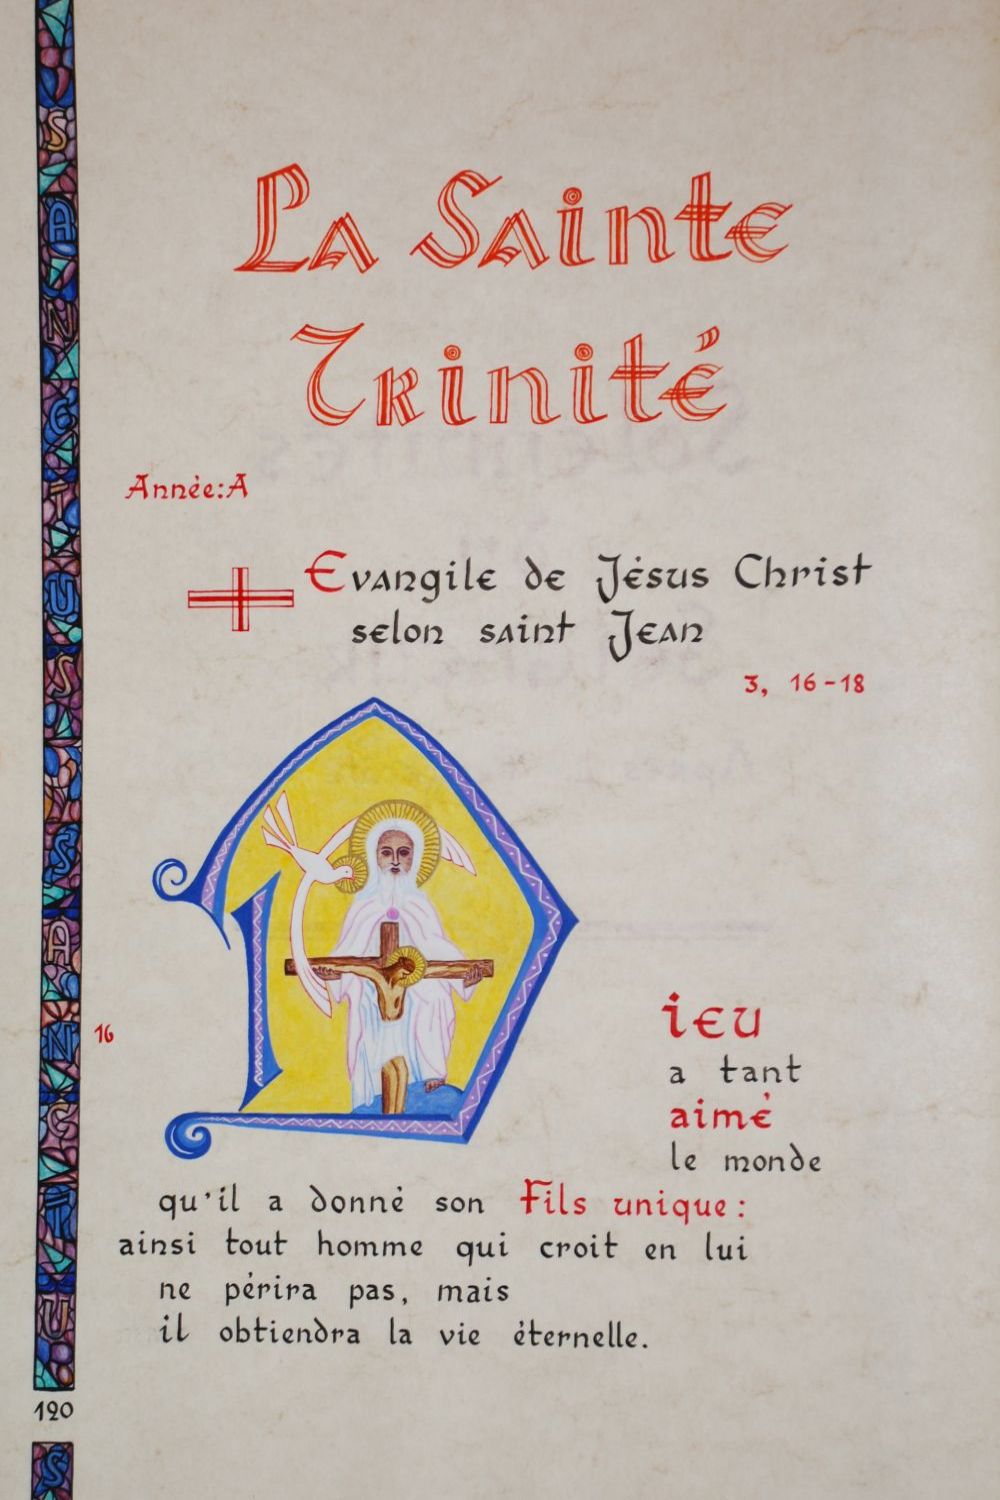 La Sainte
Trinité
Année:A
Evangile de Jésus Christ
selon saint Jean
3, 16-18
16
Dieu
a tant
aimé
le monde
qu'il a donné son Fils unique:
ainsi tout homme qui croit en lui
ne périra pas, mais
il obtiendra la vie éternelle.
SANCTUS SANCTUS
120
S